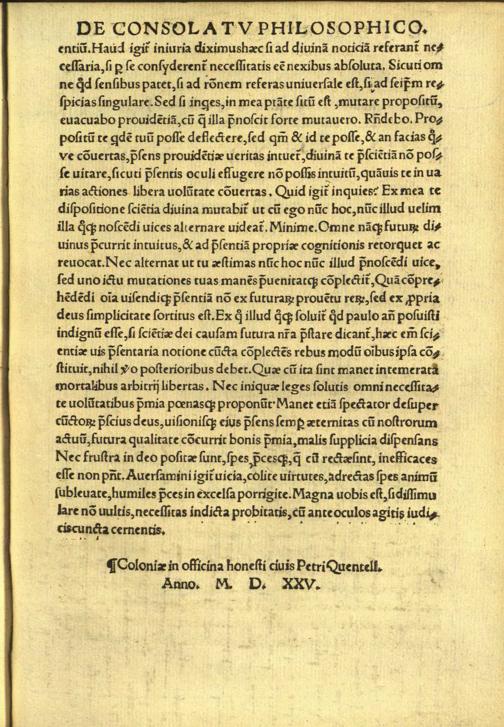 DE CONSOLATV PHILOSOPHICO.
entiũ. Haud igit̃ iniuria diximushæc si ad diuinã noticiã referant̃ ne⸗
cessaria, si ꝑ se consyderent̃ necessitatis eẽ nexibus absoluta. Sicuti om
ne qd̃ sensibus patet, si ad rõnem referas uniuersale est, si ad seip̃m re⸗
spicias singulare. Sed si inq̃es, in mea ptãte sitũ est, mutare propositũ,
euacuabo prouidẽtiã, cũ q̃ illa p̃noscit forte mutauero. Rñdebo. Pro⸗
positũ te qdẽ tuũ posse deflectere, sed qm̃ & id te posse, & an facias q̃⸗
ve cõuertas, p̃sens prouidẽtiæ ueritas intuet̃, diuinã te p̃sciẽtiã nõ pos⸗
se uitare, sicuti p̃sentis oculi effugere nõ possis intuitũ, quãuis te in ua
rias actiones libera uolũtate cõuertas. Quid igit̃ inquies? Ex mea te
dispositione sciẽtia diuina mutabit̃ ut cũ ego nũc hoc, nũc illud uelim
illa q̃qꝫ noscẽdi uices alternare uideat̃. Minime. Omne nãqꝫ futurꝝ di⸗
uinus p̃currit intuitus, & ad p̃sentiã propriæ cognitionis retorquet ac
reuocat. Nec alternat ut tu æstimas nũc hoc nũc illud p̃noscẽdi uice,
sed uno ictu mutationes tuas manẽs p̃uenitatqꝫ cõplectit̃, Quã cõpre⸗
hẽdẽdi oĩa uisendiqꝫ p̃sentiã nõ ex futurarꝝ prouẽtu rerꝝ, sed ex ꝓpria
deus simplicitate sortitus est. Ex q̃ illud q̃qꝫ soluit̃ qd̃ paulo añ posuisti
indignũ esse, si sciẽtiæ dei causam futura nr̃a p̃stare dicant̃, hæc em̃ sci⸗
entiæ uis p̃sentaria notione cũcta cõplectẽs rebus modũ oĩbus ipsa cõ⸗
stituit, nihil ỹo posterioribus debet. Quæ cũ ita sint manet intemerata
mortalibus arbitrij libertas. Nec iniquæ leges solutis omni necessita⸗
te uolũtatibus p̃mia pœnasqꝫ proponũt. Manet etiã spectator desuper
cũctorꝝ p̃scius deus, uisionisqꝫ eius p̃sens semp̃ æternitas cũ nostrorum
actuũ, futura qualitate cõcurrit bonis p̃mia, malis supplicia dispensans
Nec frustra in deo positæ sunt, spes p̃cesqꝫ, q̃ cũ rectæsint, inefficaces
esse non pñt. Auersamini igit̃ uicia, colite uirtutes, adrectas spes animũ
subleuate, humiles p̃ces in excelsa porrigite. Magna uobis est, si dissimu
lare nõ uultis, necessitas indicta probitatis, cũ ante oculos agitis iudi⸗
cis cuncta cernentis.
¶Coloniæ in officina honesti ciuis Petri Quentell.
Anno. M. D. XXV.